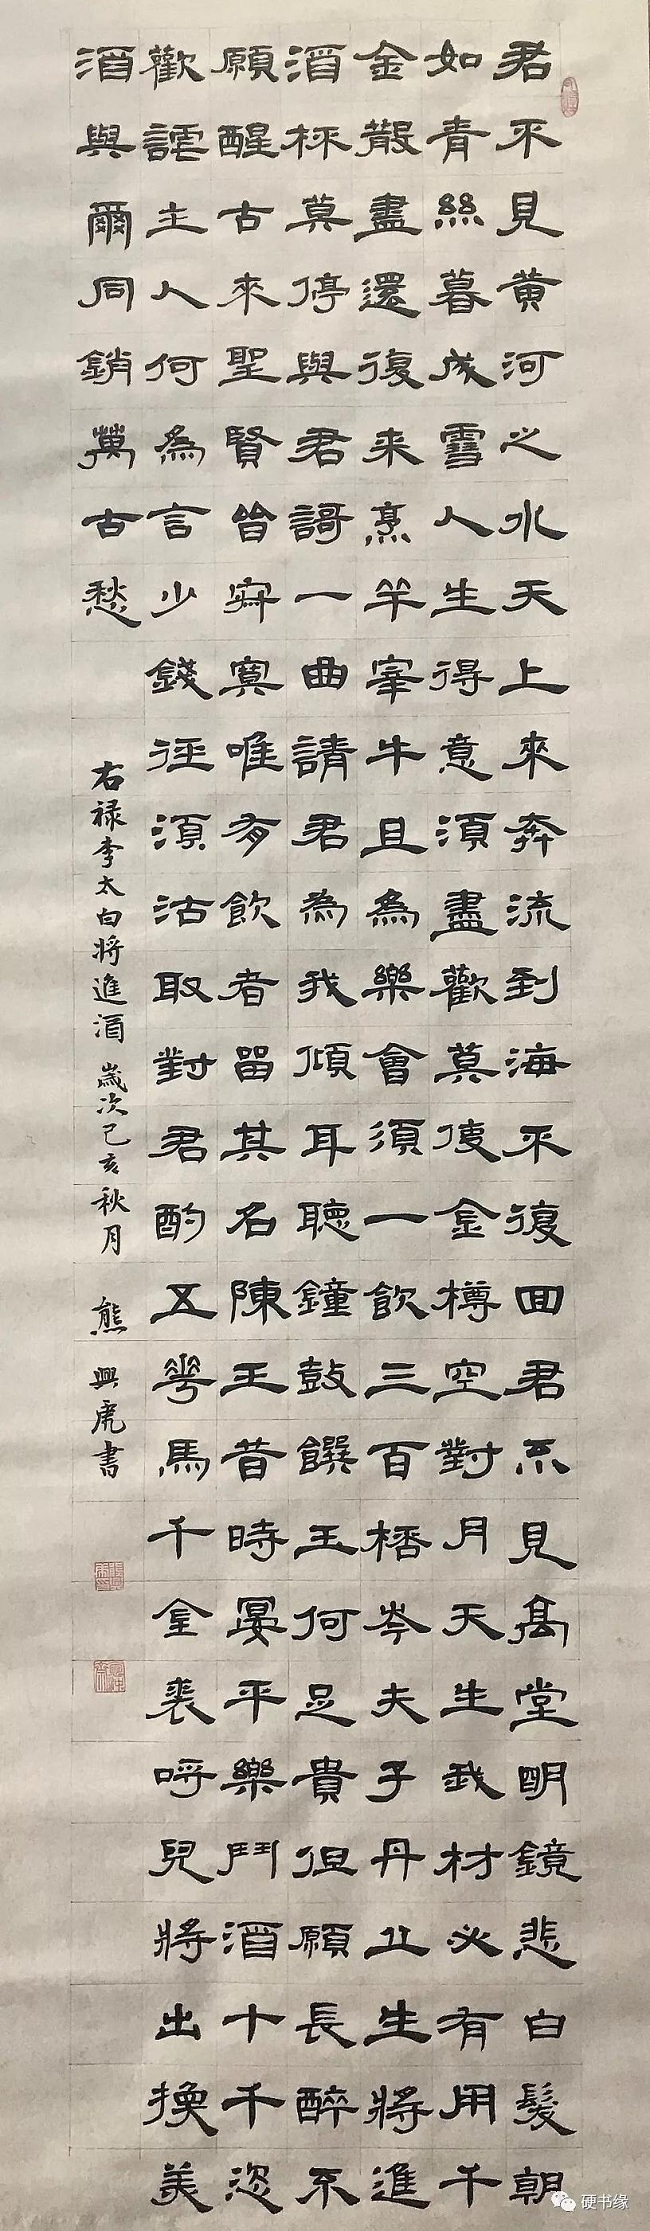 君不見黃河之水天上來奔流到海不復回君不見高堂明鏡悲白髮朝
如青絲暮成雪人生得意須盡歡莫使金樽空對月天生我材必有用千
金散盡還復来烹羊宰牛且為樂會須一飲三百桮岑夫子丹丘生將進
酒杯莫停與君謌一曲請君為我傾耳聽鐘鼓饌玉何足貴但願長醉不
願醒古來聖賢皆寂寞唯有飲者留其名陳王昔時宴平樂鬥酒十千恣
歡謔主人何為言少錢徑須沽取對君酌五花馬千金裘呼兒將出換美
酒與爾同銷萬古愁
右禄李太白將進酒 歲次己亥秋月 熊興虎書
硬书缘